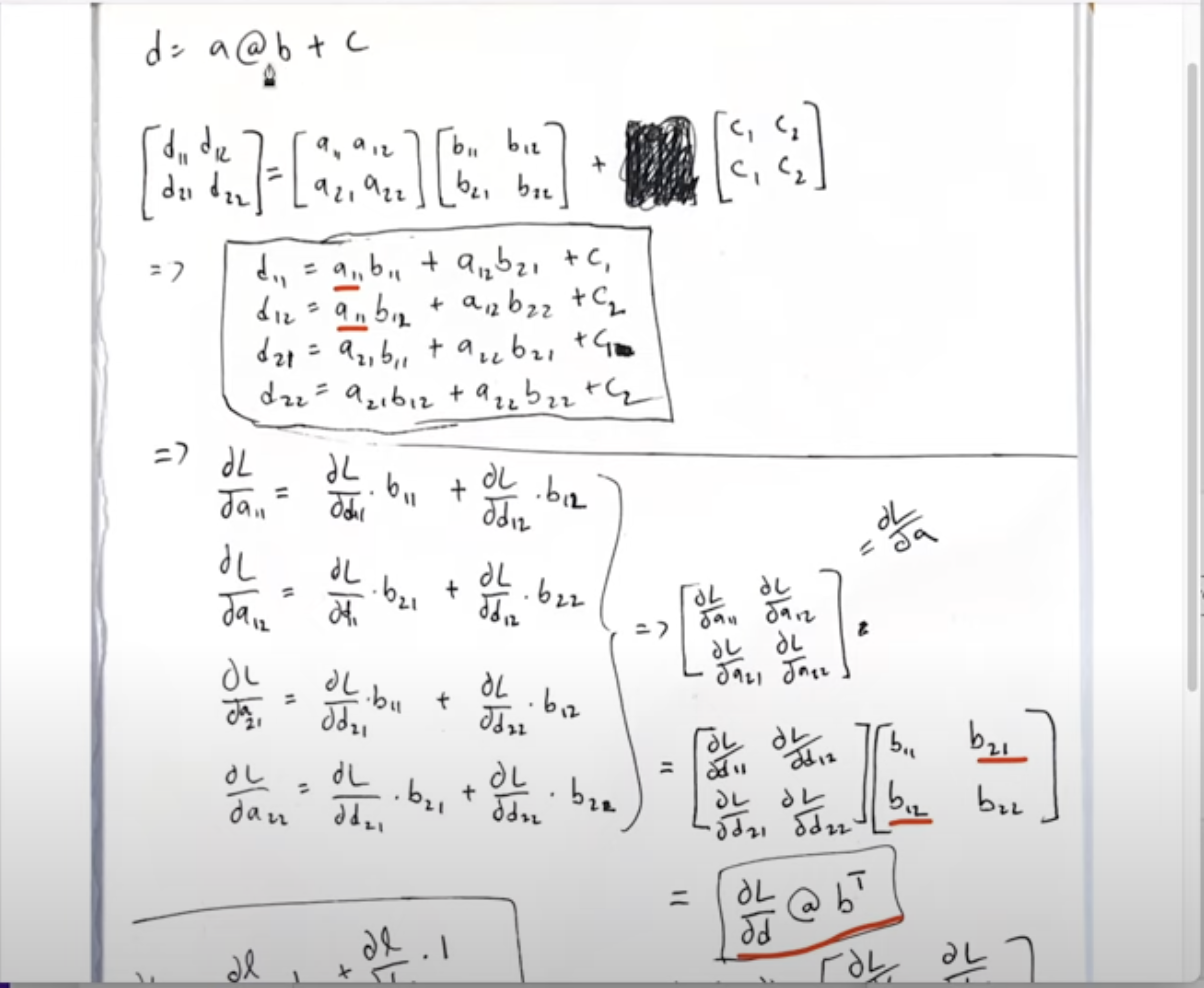 d = a@b + c
[d₁₁ d₁₂ = [a₁₁ a₁₂ [b₁₁ b₁₂ + [c₁ c₂
d₂₁ d₂₂] a₂₁ a₂₂] b₂₁ b₂₂] c₁ c₂]
=> d₁₁ = a₁₁b₁₁ + a₁₂b₂₁ + c₁
d₁₂ = a₁₁b₁₂ + a₁₂b₂₂ + c₂
d₂₁ = a₂₁b₁₁ + a₂₂b₂₁ + c₁
d₂₂ = a₂₁b₁₂ + a₂₂b₂₂ + c₂
=> ∂L/∂a₁₁ = ∂L/∂d₁₁ · b₁₁ + ∂L/∂d₁₂ · b₁₂
∂L/∂a₁₂ = ∂L/∂d₁₁ · b₂₁ + ∂L/∂d₁₂ · b₂₂
∂L/∂a₂₁ = ∂L/∂d₂₁ · b₁₁ + ∂L/∂d₂₂ · b₁₂
∂L/∂a₂₂ = ∂L/∂d₂₁ · b₂₁ + ∂L/∂d₂₂ · b₂₂
= ∂L/∂a
=> [∂L/∂a₁₁ ∂L/∂a₁₂
∂L/∂a₂₁ ∂L/∂a₂₂]
= [∂L/∂d₁₁ ∂L/∂d₁₂ [b₁₁ b₂₁
∂L/∂d₂₁ ∂L/∂d₂₂] b₁₂ b₂₂]
= ∂L/∂d @ bᵀ